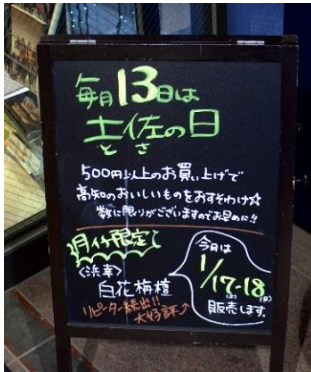 毎月13日は
土佐の日
とさ
500円以上のお買い上げで
高知のおいしいものをおすそわけ☆
数に限りがございますのでお早めに!!
月イチ限定
〈浜幸〉
白花栴檀
リピーター続出!!
大好評♪
今月は
1/17-18
販売します。